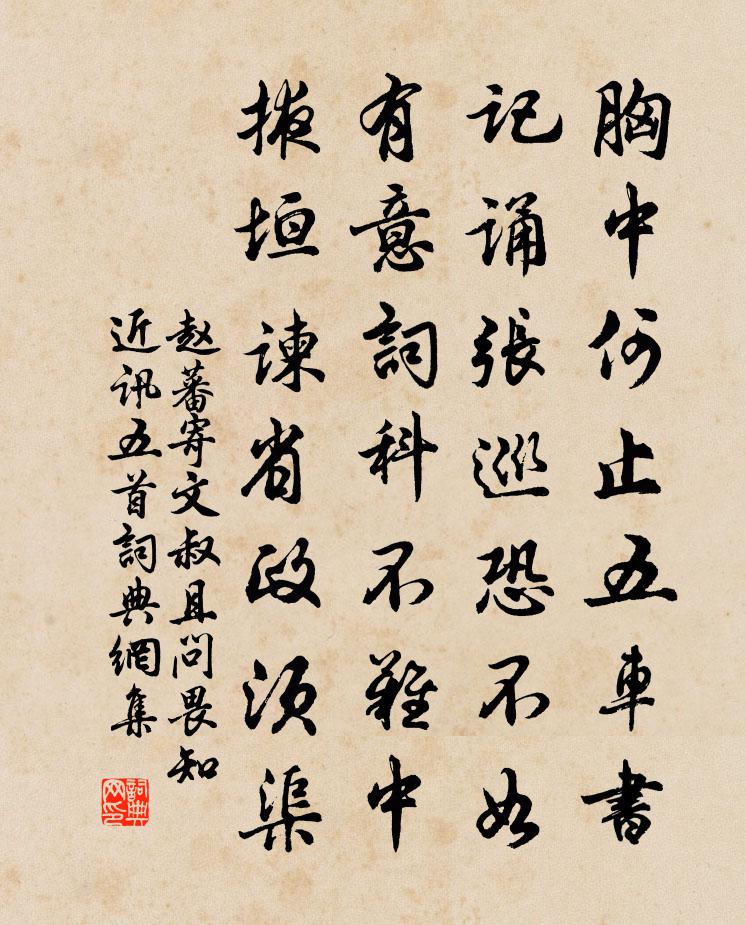 胸中何止五車書
記誦張巡恐不如
有意詞科不難中
掖垣諫省政須渠
赵蕃寄文叔且問畏知
近訊五首詞典網集
詞典
网印